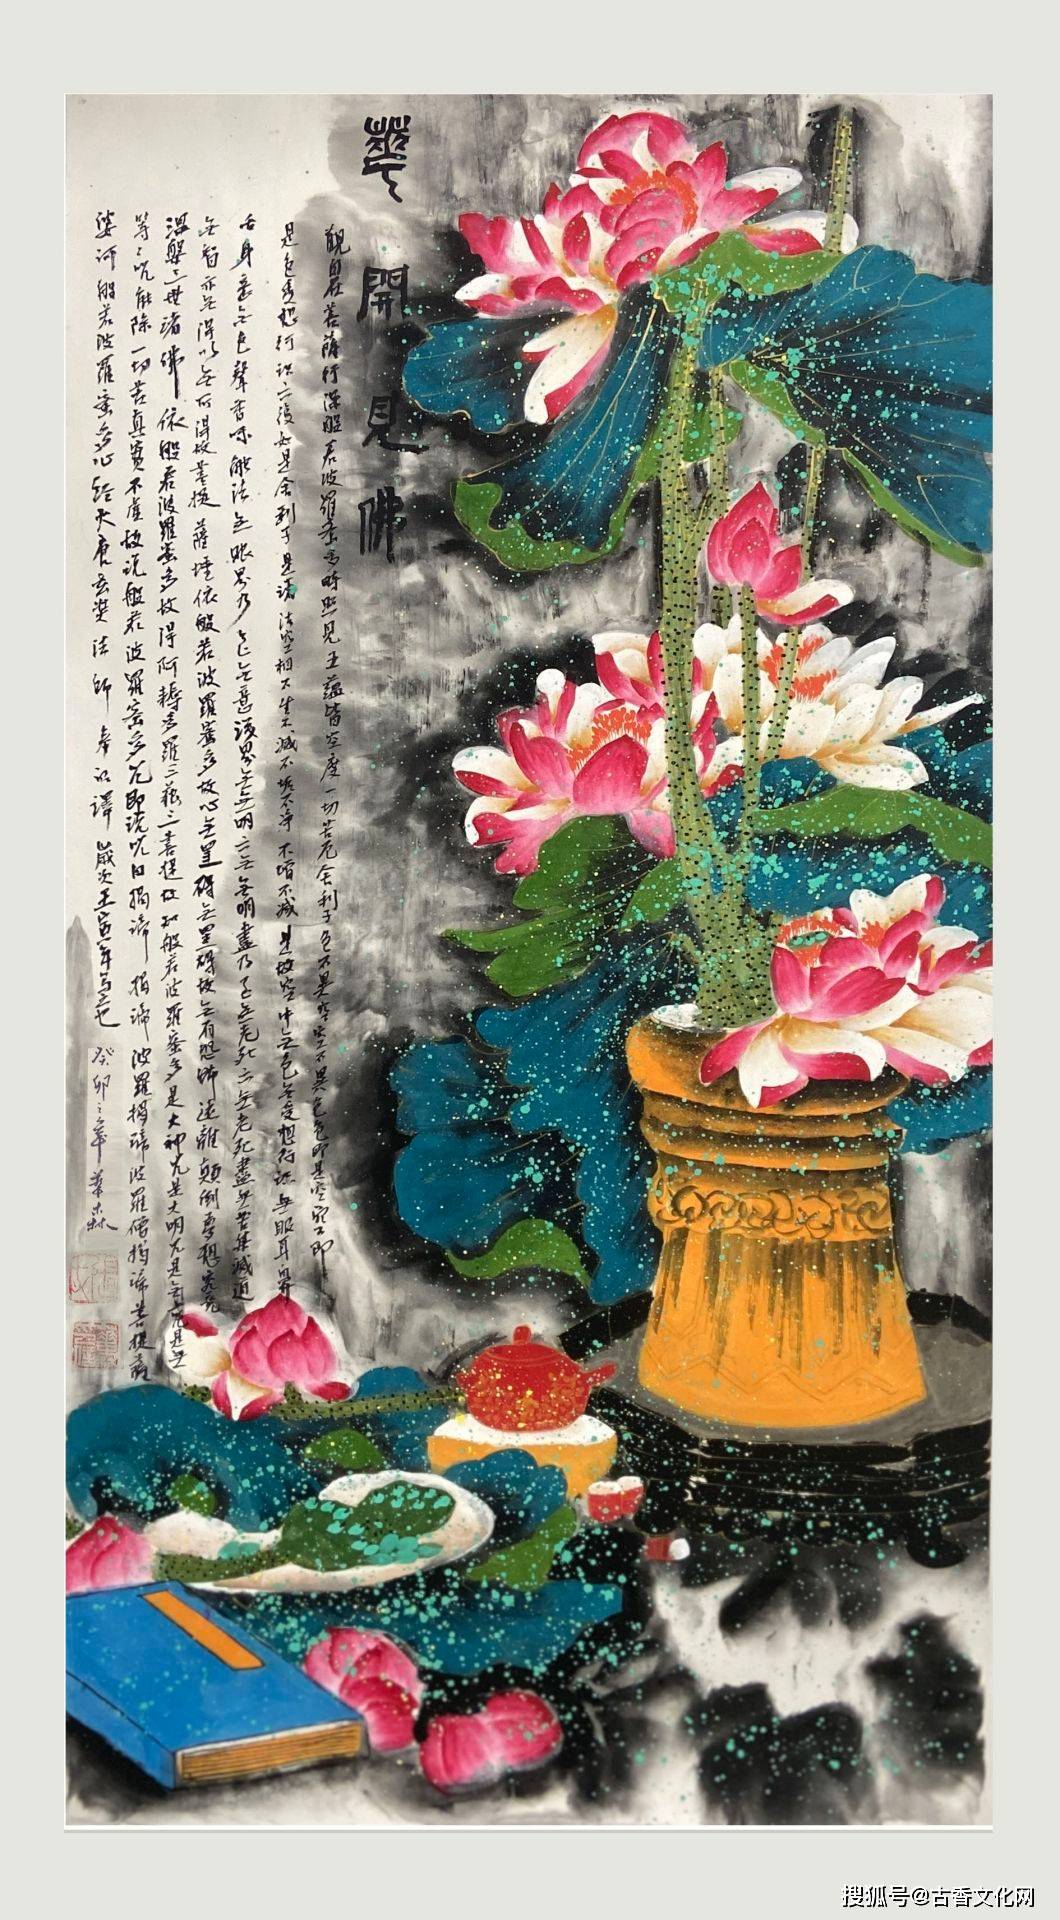 華開見佛
觀自在菩薩行深般若波羅蜜多時照見五蘊皆空度一切苦厄舍利子色不異空空不異色色即是空空即
是色受想行识亦復如是舍利子是诸法空相不生不滅不垢不净不增不减是故空中无色无受想行识无眼耳鼻
舌身意无色聲香味觸法无眼界乃至无意識界无无明亦无无明盡乃至无老死亦无老死盡无苦集滅道
无智亦无得以无所得故菩提薩埵依般若波羅蜜多故心无罣碍无罣碍故无有恐怖遠離顛倒夢想究竟
涅槃三世诸佛依般若波羅蜜多故得阿耨多羅三藐三菩提故知般若波羅蜜多是大神咒是大明咒是无上咒是无
等等咒能除一切苦真實不虚故说般若波羅蜜多咒即说咒曰揭谛揭谛波羅揭谛波羅僧揭谛菩提薩
婆诃般若波羅蜜多心经大唐玄奘法師奉诏譯歲次壬寅年寫之也
癸卯之年葉森
搜狐号@古香文化网